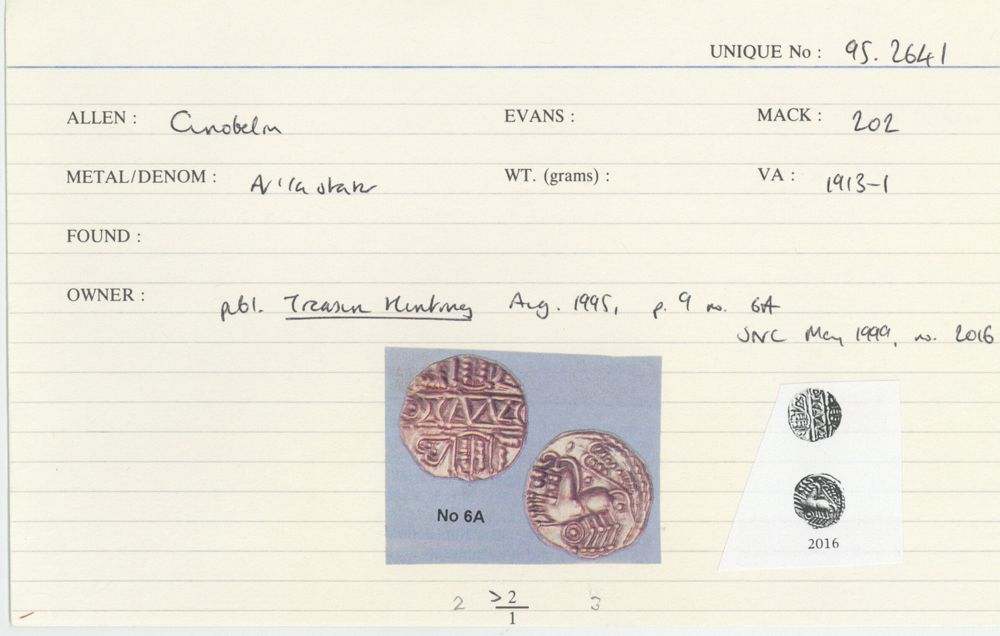 UNIQUE No : 95.2641
ALLEN : Cunobelin EVANS : MACK : 202
METAL/DENOM : WT. (grams) : VA : 1913-1
FOUND :
OWNER :
publ. Treasure Hunting Aug. 1995, p. 9 no. 6A
SNC May 1999, no. 2016
No 6A
2016
2 >2 3
1